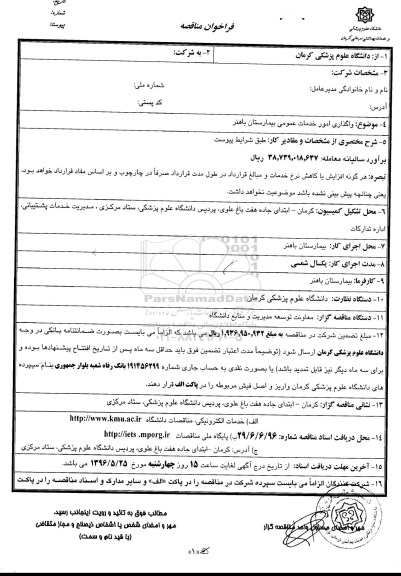 تاریخ:
شماره:
پیوست:
فراخوان مناقصه
دانشگاه علوم پزشکی
و خدمات بهداشتی درمانی کرمان
۱- از: دانشگاه علوم پزشکی کرمان
۲- به شرکت:
۳- مشخصات شرکت:
نام و نام خانوادگی مدیرعامل:
شماره ملی:
آدرس:
کد پستی:
۴- موضوع: واگذاری امور خدمات عمومی بیمارستان باهنر
۵- شرح مختصری از مشخصات و مقادیر کار: طبق شرایط پیوست
برآورد سالیانه معامله: ۳۸,۷۳۹,۰۱۸,۶۳۷ ریال
تبصره: هر گونه افزایش یا کاهش نرخ خدمات و مبالغ قرارداد در طول مدت قرارداد صرفاً در چارچوب و بر اساس مفاد قرارداد خواهد بود.
یعنی چنانچه پیش بینی نشده باشد موضوعیت نخواهد داشت.
۶- محل تشکیل کمیسیون: کرمان - ابتدای جاده هفت باغ علوی، پردیس دانشگاه علوم پزشکی، ستاد مرکزی، مدیریت خدمات پشتیبانی،
اداره تدارکات
۷- محل اجرای کار: بیمارستان باهنر
۸- مدت اجرای کار: یکسال شمسی
۹- کارفرما: بیمارستان باهنر
۱۰- دستگاه نظارت: دانشگاه علوم پزشکی کرمان
۱۱- دستگاه مناقصه گزار: معاونت توسعه مدیریت و منابع دانشگاه
۱۲- مبلغ تضمین شرکت در مناقصه به مبلغ ۱,۹۳۶,۹۵۰,۹۳۲ ریال می باشد که الزاماً می بایست بصورت ضمانتنامه بانکی در وجه
دانشگاه علوم پزشکی کرمان ارسال شود (توضیحاً مدت اعتبار تضمین فوق باید حداقل سه ماه پس از تاریخ افتتاح پیشنهادها بوده و
برای سه ماه دیگر نیز قابل تمدید باشد) یا بصورت نقدی به حساب جاری شماره ۱۹۱۴۵۶۲۹۹ بانک رفاه شعبه بلوار جمهوری بنام سپرده
های دانشگاه علوم پزشکی کرمان واریز و اصل فیش مربوطه را در پاکت الف قرار دهند.
۱۳- نشانی مناقصه گزار: کرمان - ابتدای جاده هفت باغ علوی، پردیس دانشگاه علوم پزشکی، ستاد مرکزی
الف) خدمات الکترونیکی، مناقصات دانشگاه http://www.kmu.ac.ir
۱۴- محل دریافت اسناد مناقصه شماره: ۲۹/۶/۶/۹۶ ب) پایگاه ملی مناقصات http://iets.mporg.ir
ج) آدرس: کرمان - ابتدای جاده هفت باغ علوی، پردیس دانشگاه علوم پزشکی، ستاد مرکزی
۱۵- آخرین مهلت دریافت اسناد: از تاریخ درج آگهی لغایت ساعت ۱۵ روز چهارشنبه مورخ ۱۳۹۶/۵/۲۵ می باشد.
۱۶- شرکت کنندگان الزاماً می بایست سپرده شرکت در مناقصه را در پاکت «الف» و سایر مدارک و اسناد مناقصه را در پاکت
مطالب فوق به تائید و رویت اینجانب رسید.
مهر و امضای شخص یا اشخاص ذیصلاح و مجاز متقاضی
(با قید نام و سمت)
مهر و امضای
مناقصه گزار
ParsNamadData
«۱»